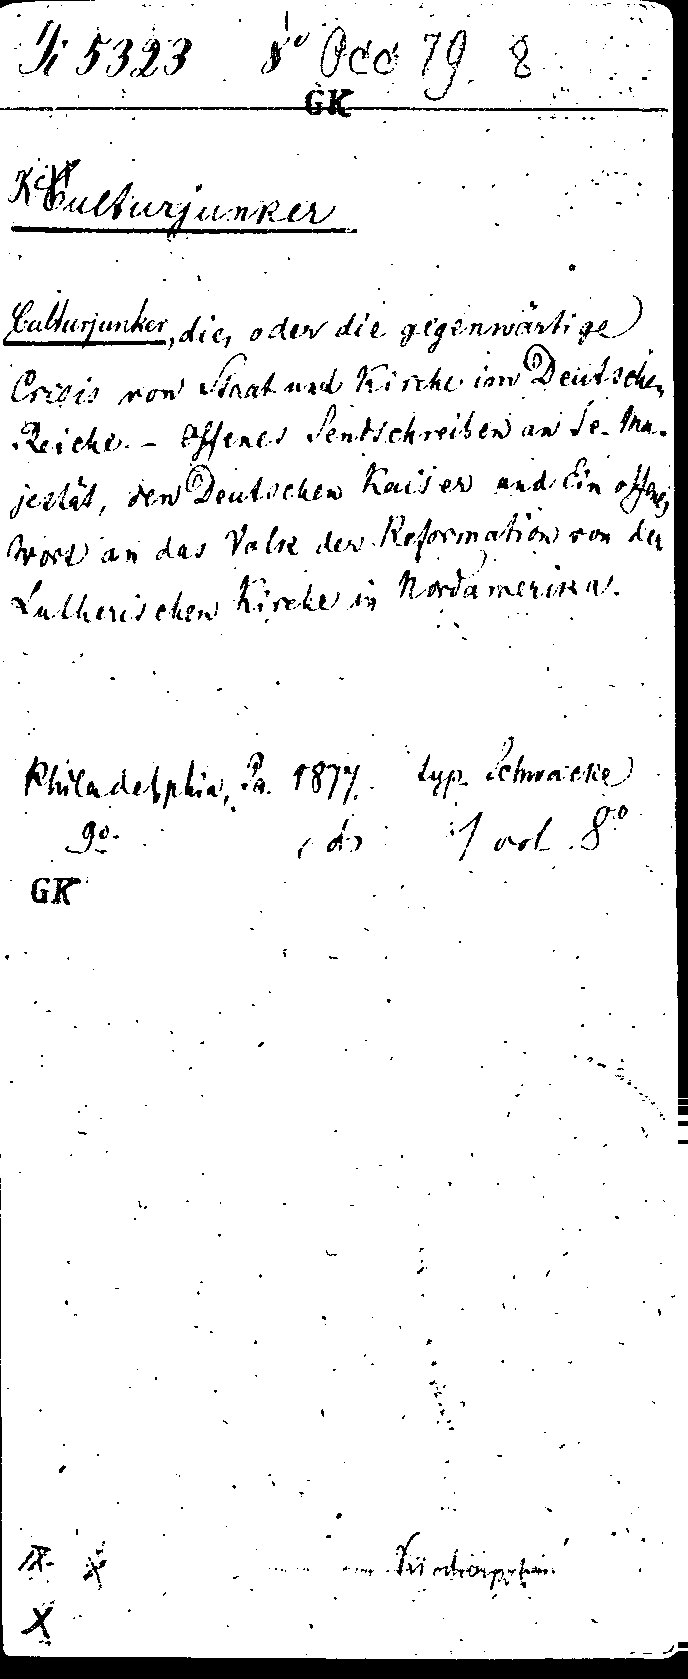 Ti 5323 8° Occ 79. 8
GK
Kulturjunker
Culturjunker, die, oder die gegenwärtige
Crisis von Staat und Kirche im Deutschen
Reiche. - Offenes Sendschreiben an Se. Ma-
jestät, den Deutschen Kaiser und Ein offenes
Wort an das Volk der Reformation von der
Lutherischen Kirche in Nordamerika.
Philadelphia, Pa. 1877. typ. Schwacke
1 vol. 8°
GK
X
X